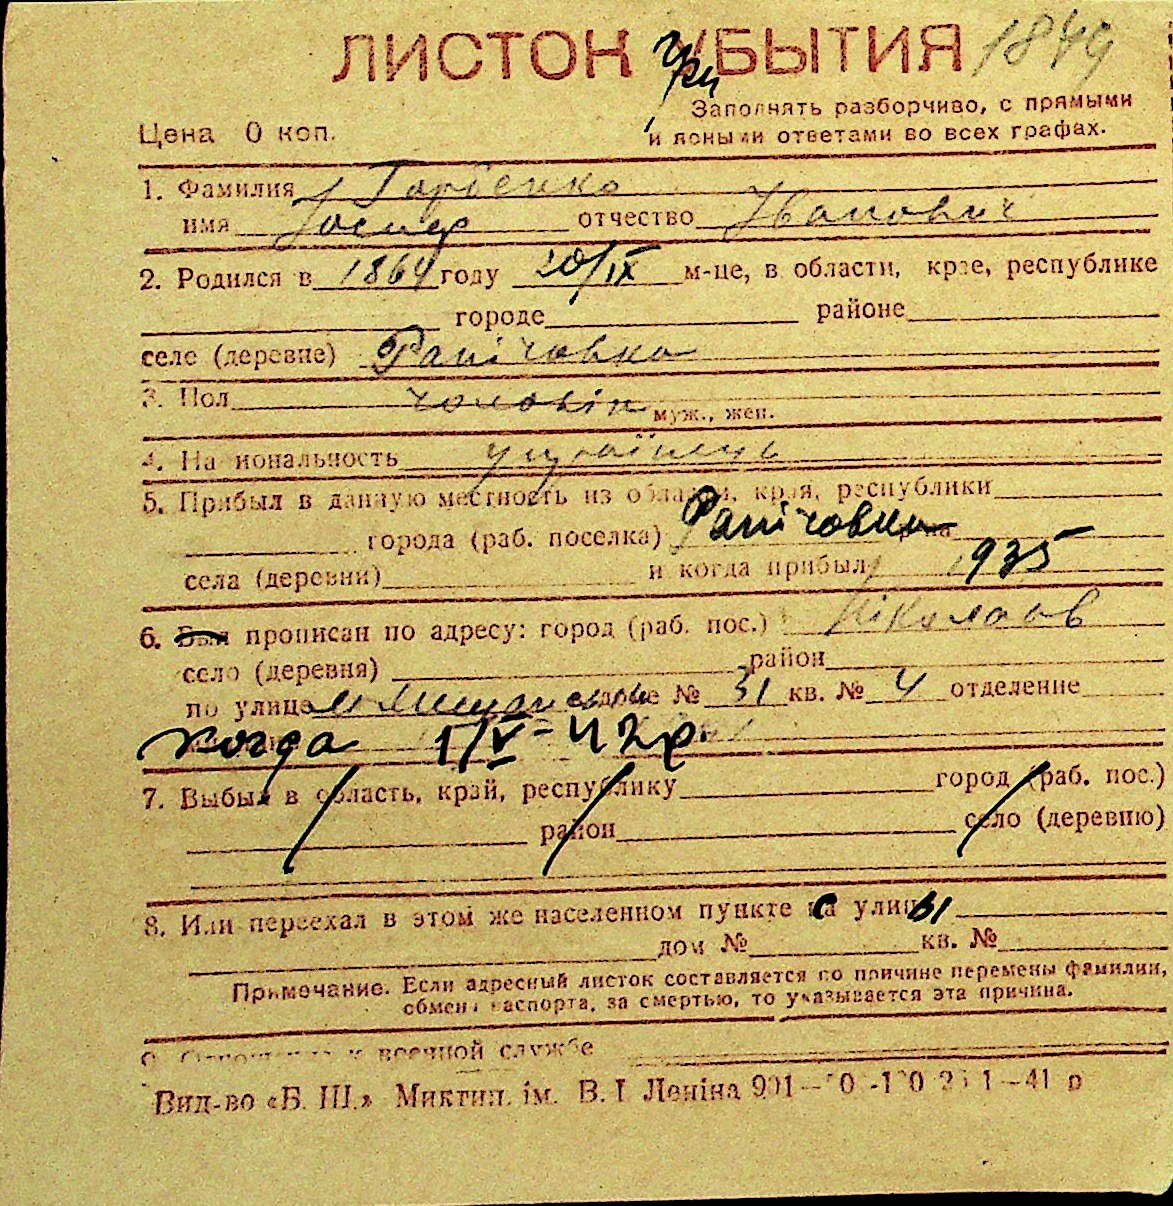 ЛИСТОК УБЫТИЯ 1849
при
Цена 0 коп.
Заполнять разборчиво, с прямыми
и ясными ответами во всех графах.
1. Фамилия Горбенко
имя Йосип отчество Иванович
2. Родился в 1864 году 20/IX м-це, в области, крае, республике
городе районе
селе (деревне)
3. Пол чоловік муж., жен.
4. Национальность українець
5. Прибыл в данную местность из области, края, республики
города (раб. поселка) р-на
села (деревни) и когда прибыл 1935
6. Был прописан по адресу: город (раб. пос.) Ніколаєв
село (деревня) район
по улице доме № 31 кв. № 4 отделение
когда 1/V-42 р.
7. Выбыл в область, край, республику город (раб. пос.)
район село (деревню)
8. Или переехал в этом же населенном пункте с улицы
дом № кв. №
Примечание. Если адресный листок составляется по причине перемены фамилии,
обмена паспорта, за смертью, то указывается эта причина.
9. Отношение к военной службе
Вид-во «Б. Ш.» Миктип. ім. В. І Леніна 901